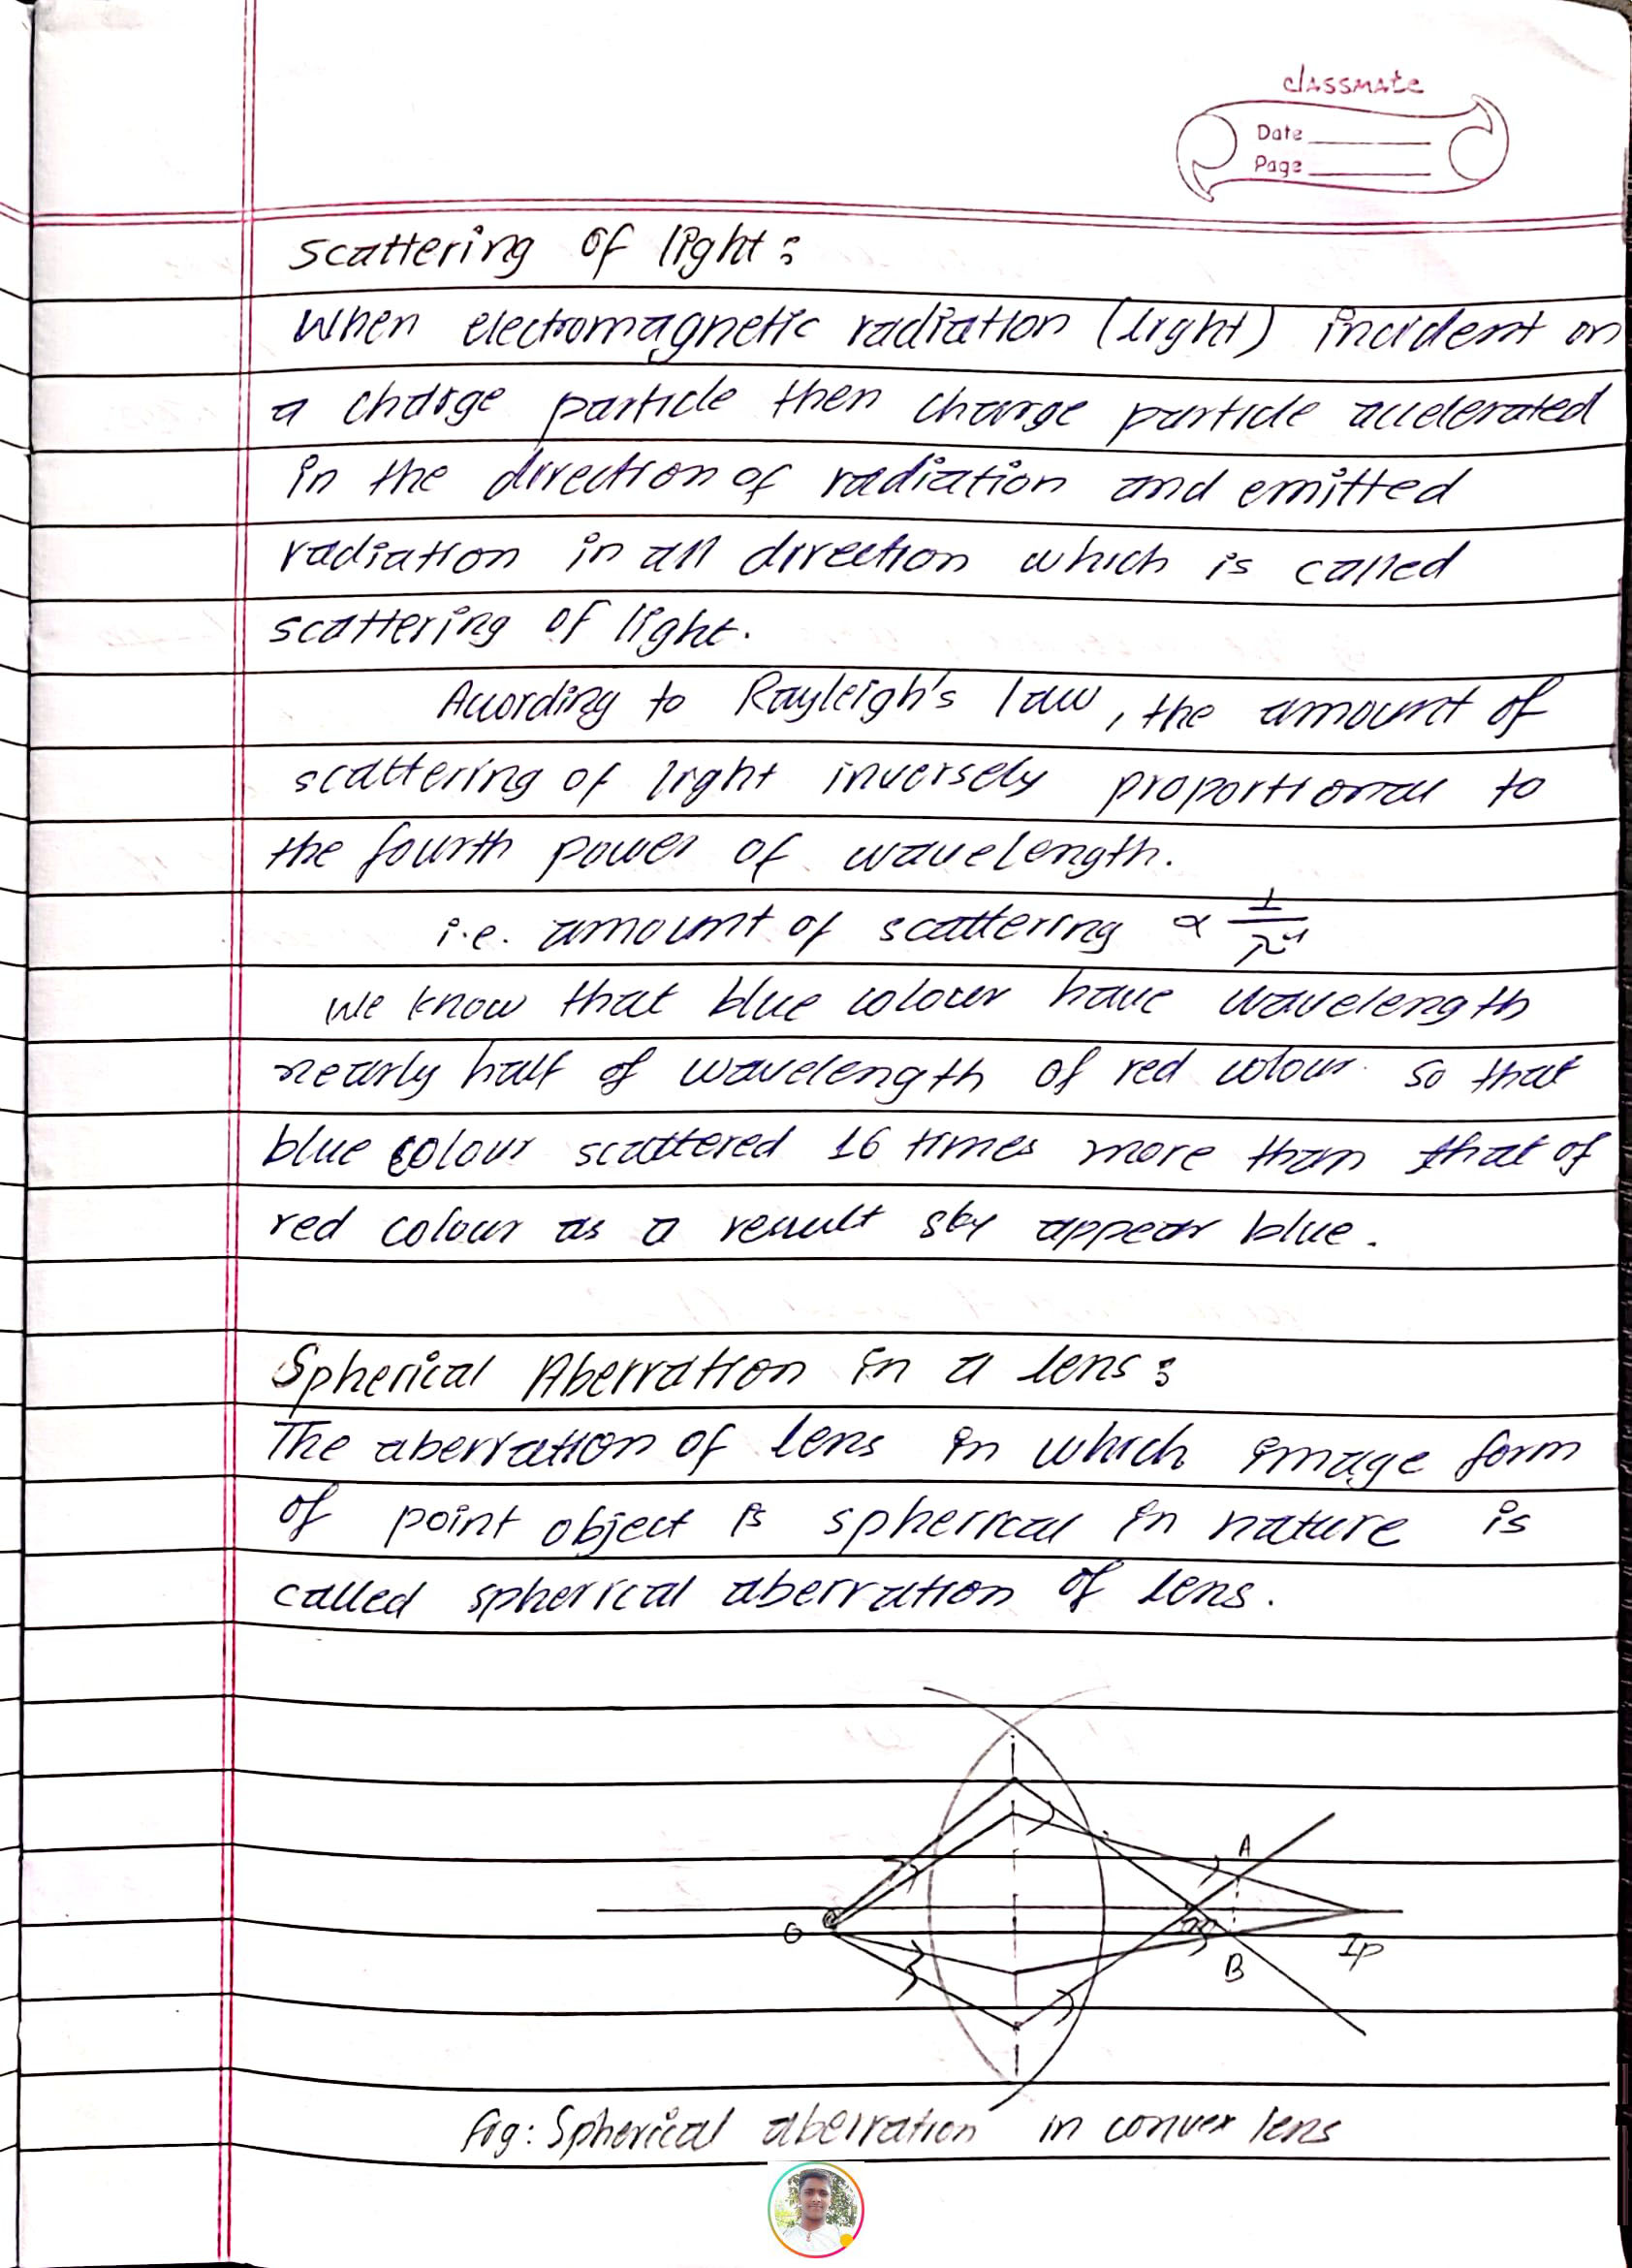 classmate
Date
Page
Scattering of light :
When electromagnetic radiation (light) incident on
a charge particle then charge particle accelerated
in the direction of radiation and emitted
radiation in all direction which is called
scattering of light.
According to Rayleigh's law, the amount of
scattering of light inversely proportional to
the fourth power of wavelength.
i.e. amount of scattering ∝ 1/λ⁴
We know that blue colour have wavelength
nearly half of wavelength of red colour. so that
blue colour scattered 16 times more than that of
red colour as a result sky appear blue.
Spherical Aberration in a lens :
The aberration of lens in which image form
of point object is spherical in nature is
called spherical aberration of lens.
A
O
B
Ip
fig: Spherical aberration in convex lens